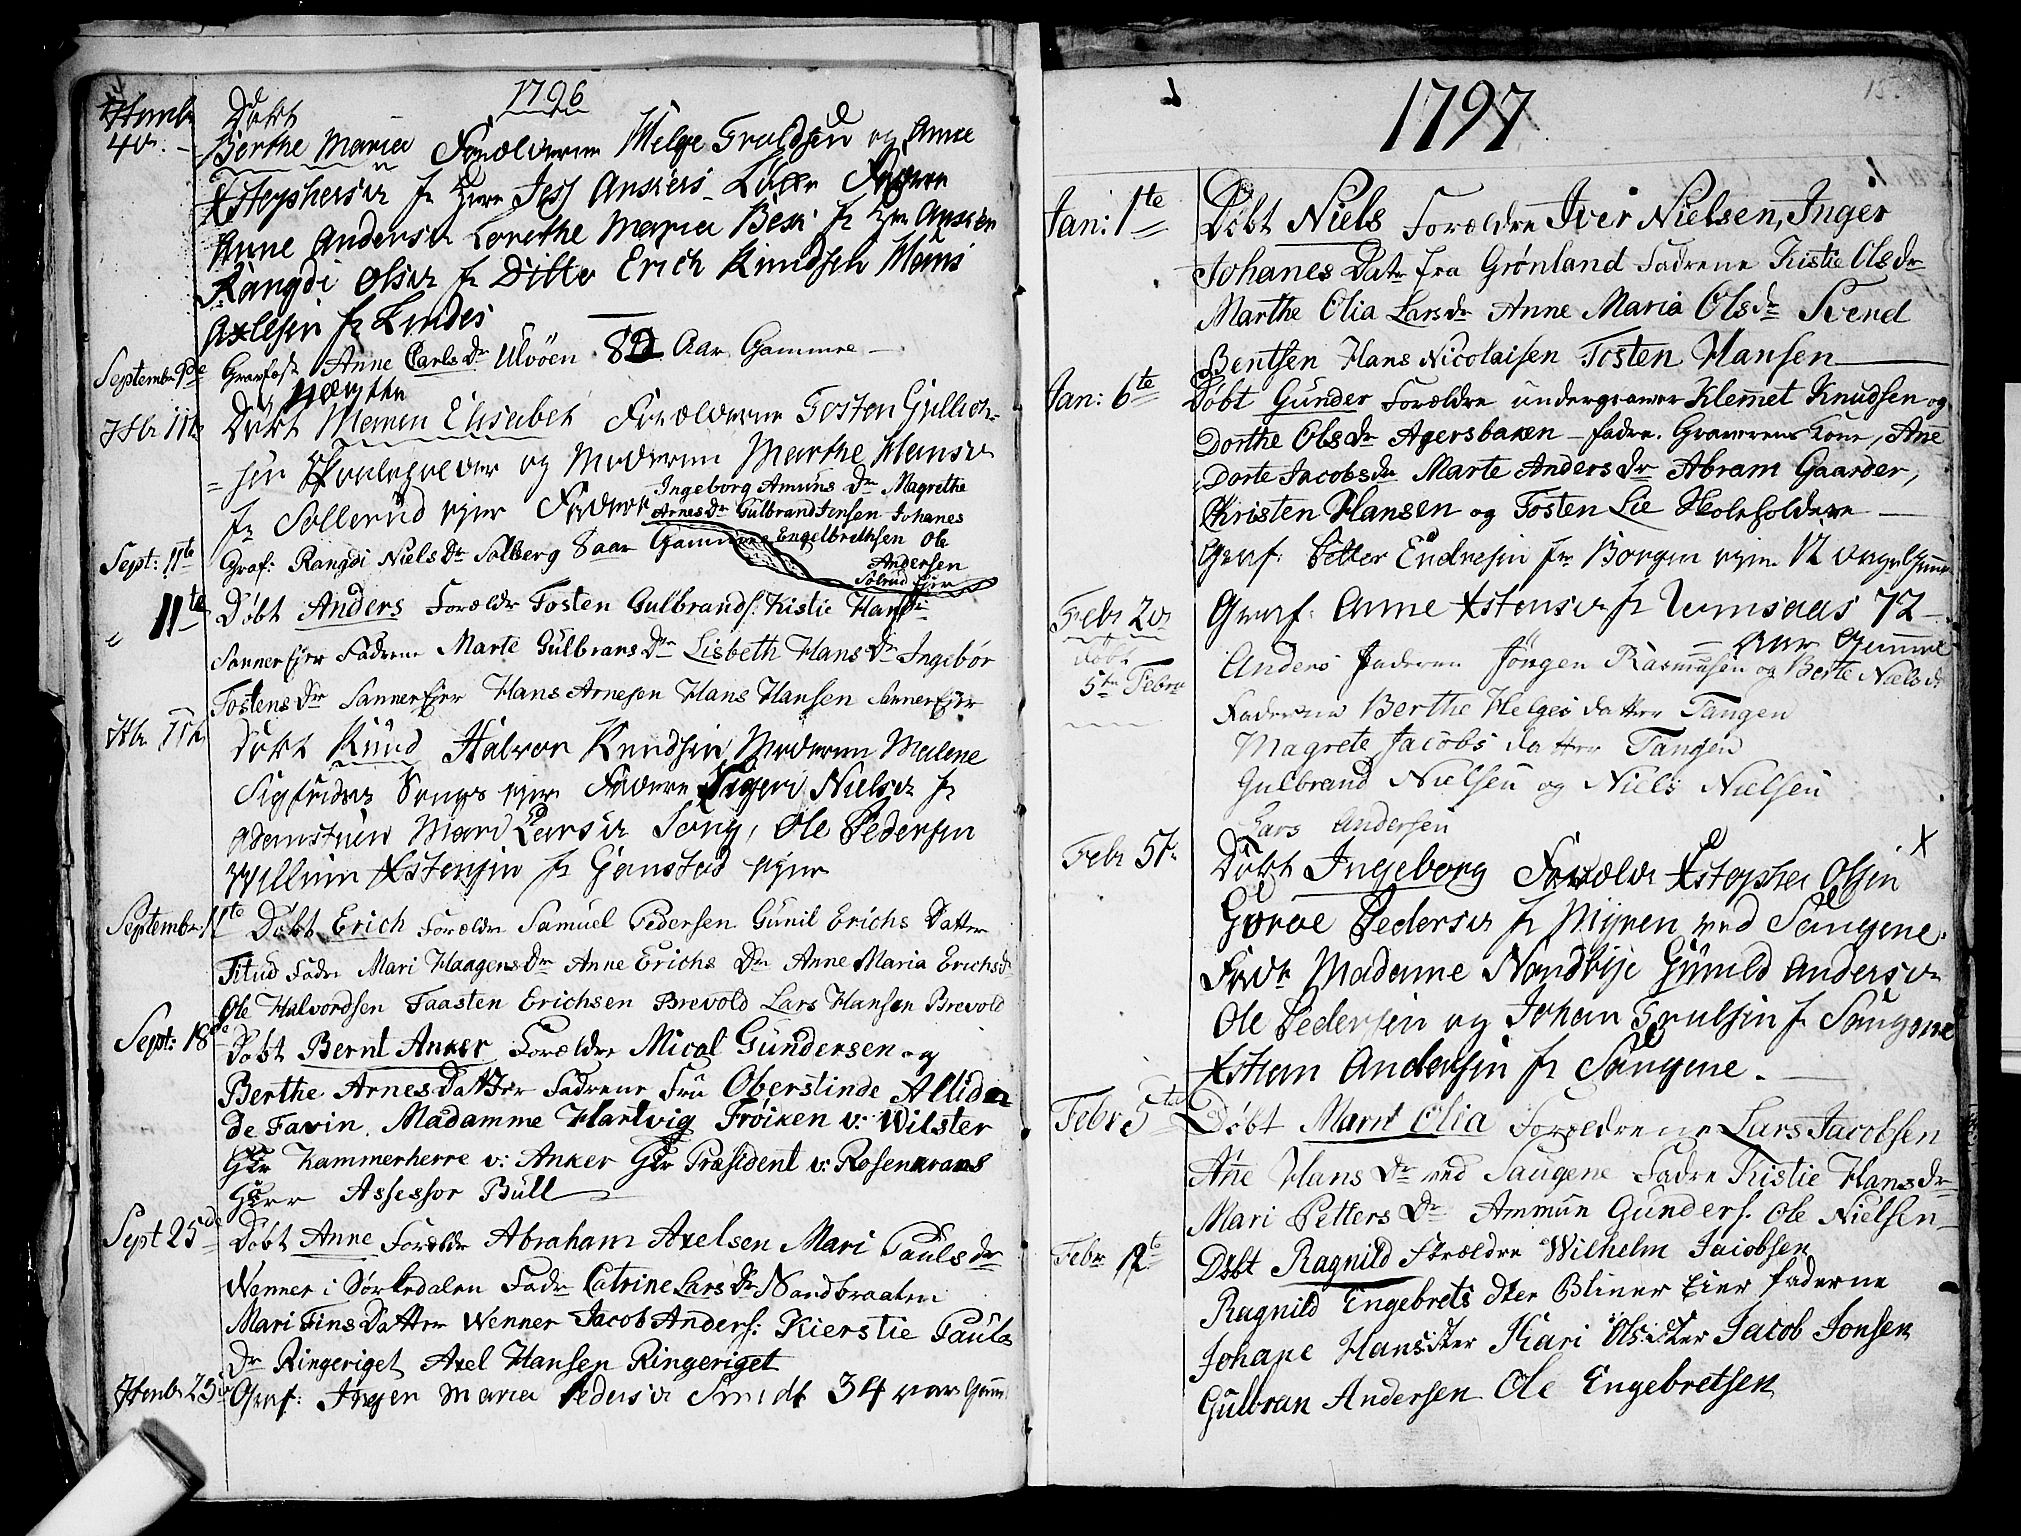 1796
7tembr Døbt
4de Berthe Maria Forælderne Helge Truldsen og Anne
Xstophersdr fr Herr Jess Ankers Løkke Fadrene
Anne Andersdr Lorethe Maria Besk fr Herr Anskers
Rangdi Olsdr fr Ditto Erich Knudsen Mons
Axelsen fr Lindes
Septembr 9de Graffæst Anne Carls Dr Ulvöen 82 Aar Gammel
7tbr 11te Døbt Maren Elisabet Forælderne Tosten Gullich-
sen og Moderen Marthe Hansdr
fr Sollerud ejer Fadrene Ingeborg Amuns Dr Magrethe
Arnes Dr Gulbrand Jensen Johanes
Engelbrethsen Ole
Andersen
Solrud Ejer
Sept: 11te Graf: Rangdi Niels Dr Solberg 8 aar Gammel
11te Døbt Anders Forældr Tosten Gulbrands: Kistie Hans dr
Sanner Ejer Fadrene Marte Gulbrans Dr Lisbeth Hans Dr Ingebor
Tostens Dr Sanner Ejer Hans Arnesen Hans Hansen Sanner Ejer
7tbr 11te Døbt Knud Halvor Knudsen Moderen Malene
Sigfridsdr Sougs ejer Fadrene Sigeri Nielsdr fr
Mari Larsdr Soug, Ole Pedersen
Willum Xstensen fr Gjenstad ejer
Septembr 11te Døbt Erich Forældre Samuel Pedersen Gunil Erichs Datter
Fitud Fadre Mari Haagens Dr Anne Erichs Dr Anne Maria Erichs dr
Ole Halvordsen Taasten Erichsen Brevold Lars Hansen Brevold
Sept: 18de Døbt Bernt Anker Forældre Micel Gundersen og
Berthe Arnes Datter Fadrene Fru Oberstinde
de Favin. Madamme Hartvig Fröiken v: Wilster
Herr Kammerherre v: Anker Herr Præsident v: Rosenkrans
Herr Assessor Bull
Sept 25de Døbt Anne Forældre Abraham Axelsen Mari Pauls dr
Wenner i Sörkedalen Fadr Catrine Lars Dr Nandbraaten
Mari Fins Datter Wenner Jacob Anders: Kierstie Pauls
Dr Ringeriget Axel Hansen Ringeriget
7tembr 25de Graf: Inger Maria Pedersdr Smidt 34 aar Gam
1797
Jan: 1te Døbt Niels Forældre Iver Nielsen, Inger
Johanes Datr fra Grønland Fadrene Kistie Olsdr
Marthe Olia Larsdr Anne Maria Olsdr Svend
Bentsen Hans Nicolaisen Tosten Hansen
Jan: 6te Døbt Gunder Forældre undergraver Klemet Knudsen og
Dorthe Olsdr Agersbaken fadre. Graverens kone, Ane
Dorte Jacobsdr Marte Andersdr Abram Gaarder,
Christen Hansen og Tosten Lie Skoleholdere
Graf: Petter Endresen fr Borgen ejer 12
Febr 2de Graf: Anne Xstensdr fr Umsaas 72
Aar Gammel
døbt Anders faderen Jörgen Rasmusen og Berte Niels dr
5te Febr Faderne Berthe Helges datter Tangen
Magrete Jacobs datter Tangen
Gulbrand Nielsen og Niels Nielsen
Lars Andersen
Febr 5te Døbt Ingeborg Forældr Xstopher Olsen X
Goroe Pedersdr fr Myren ved Saugene.
Fadr Madame Nandbye Gunild Andersdr
Ole Pedersen og Johan Poulsen fr Saugene
Xstian Andersen fr Saugene.
Febr 5te Døbt Marn Olia Forældrene Lars Jacobsen
Ane Hans Dr ved Saugene Fadre Kistie Hansdr
Mari Petters Dr Ammun Gunders. Ole Nielsen
Febr 12te Døbt Ragnild Forældre Wilhelm Jacobsen
Ragnild Engebrets dter Bliner Eier faderne
Johane Hansdter Kari Ols dter Jacob Jonsen
Gulbran Andersen Ole Engebretsen